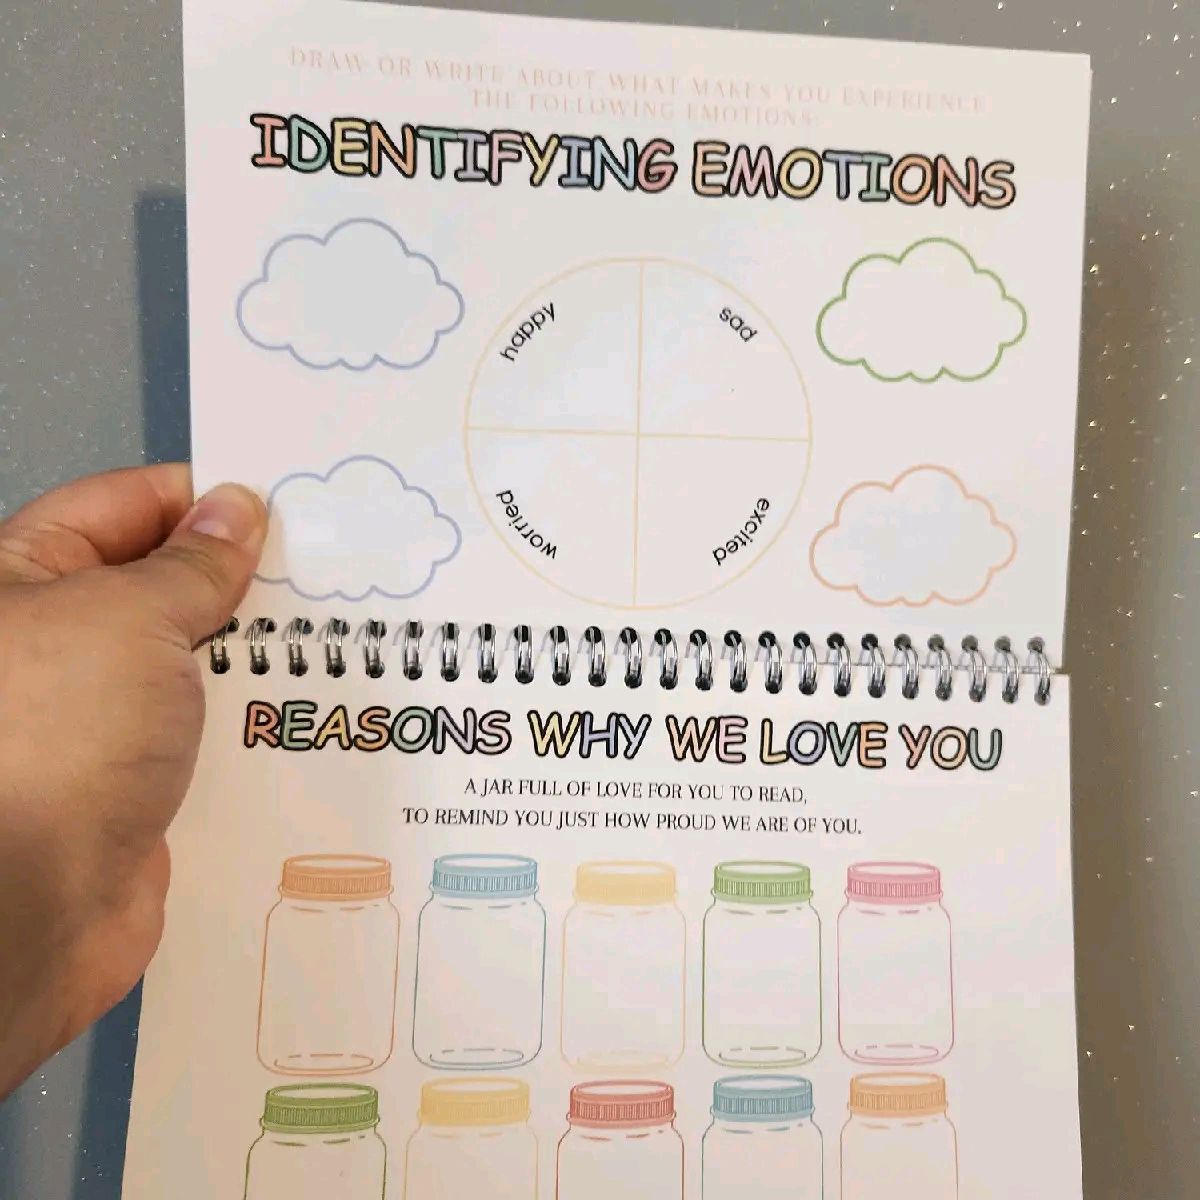 DRAW OR WRITE ABOUT WHAT MAKES YOU EXPERIENCE
THE FOLLOWING EMOTIONS:
IDENTIFYING EMOTIONS
happy
sad
worried
excited
REASONS WHY WE LOVE YOU
A JAR FULL OF LOVE FOR YOU TO READ,
TO REMIND YOU JUST HOW PROUD WE ARE OF YOU.